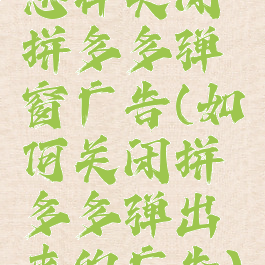 怎样关闭
拼多多弹
窗广告(如
何关闭拼
多多弹出
来的广告)